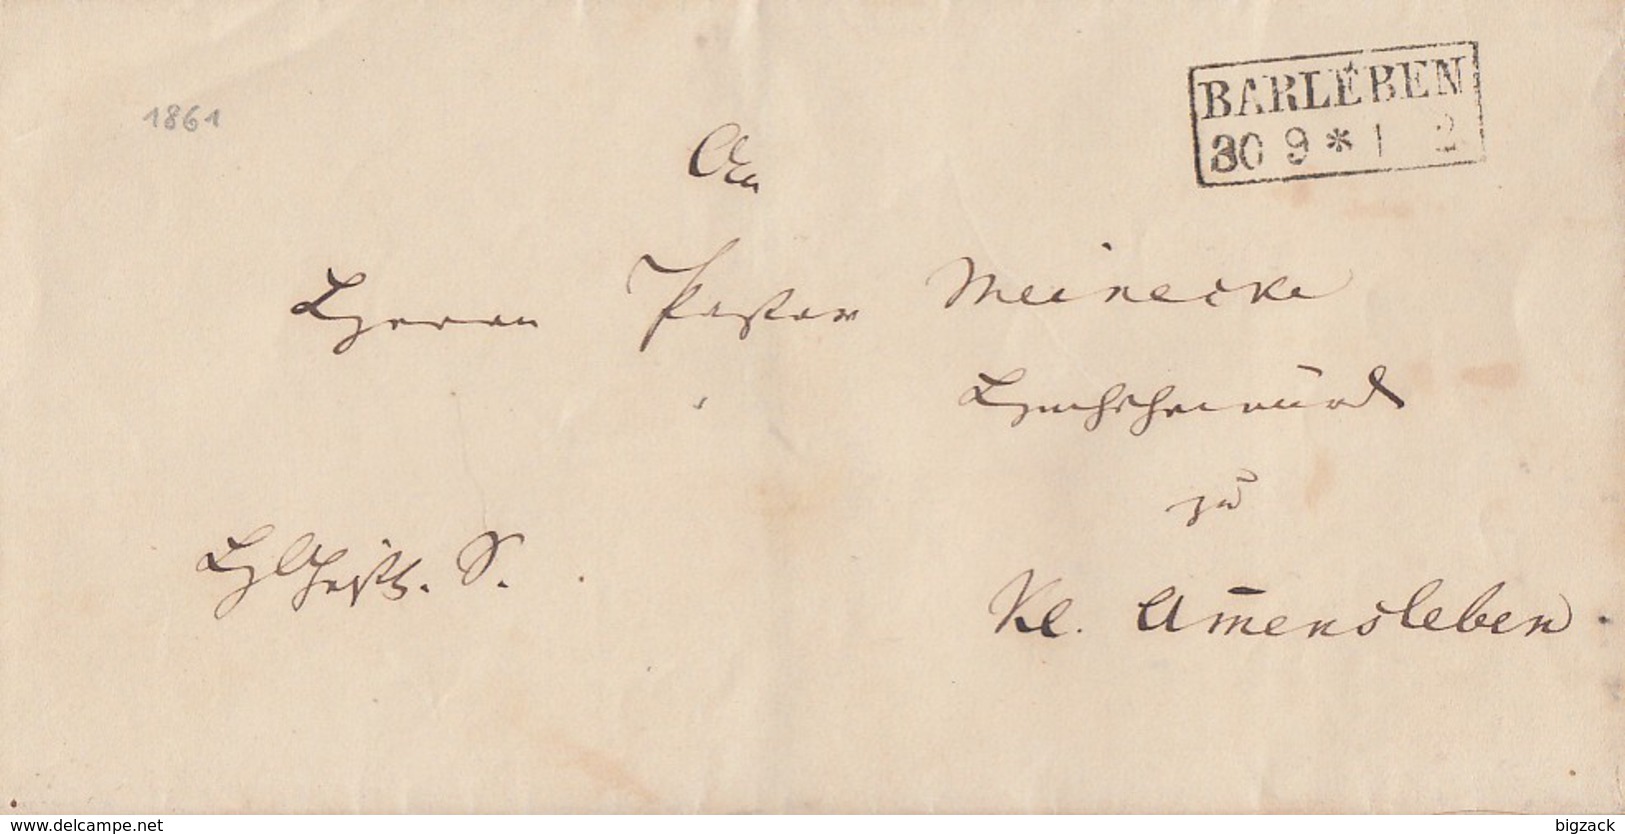 1861
BARLEBEN
30 9 * 1 2
An
Herrn Pastor Meinecke
Hochehrwürd
zu
Kl. Am̅ensleben
S.
www.delcampe.net
bigzack